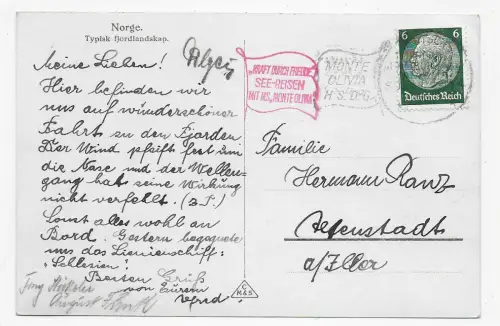 Norge.
Typisk fjordlandskap.
Meine Lieben!
Hier befinden wir
uns auf wunderschöner
Fahrt zu den Fjorden
Der Wind pfeift fest um
die Nase und der Wellen-
gang hat seine Wirkung
nicht verfehlt. (z.T.)
Sonst alles wohl an
Bord. Gestern begegnete
uns das Linienschiff:
"Schlesien!"
Besten Gruß
von Eurem
August
"KRAFT DURCH FREUDE"
SEE-REISEN
MIT M.S. "MONTE OLIVIA"
MONTE
OLIVIA
H.S.D.G.
6 6
Deutsches Reich
Familie
Hermann Ranz
Altenstadt
a/Iller
C
M&S